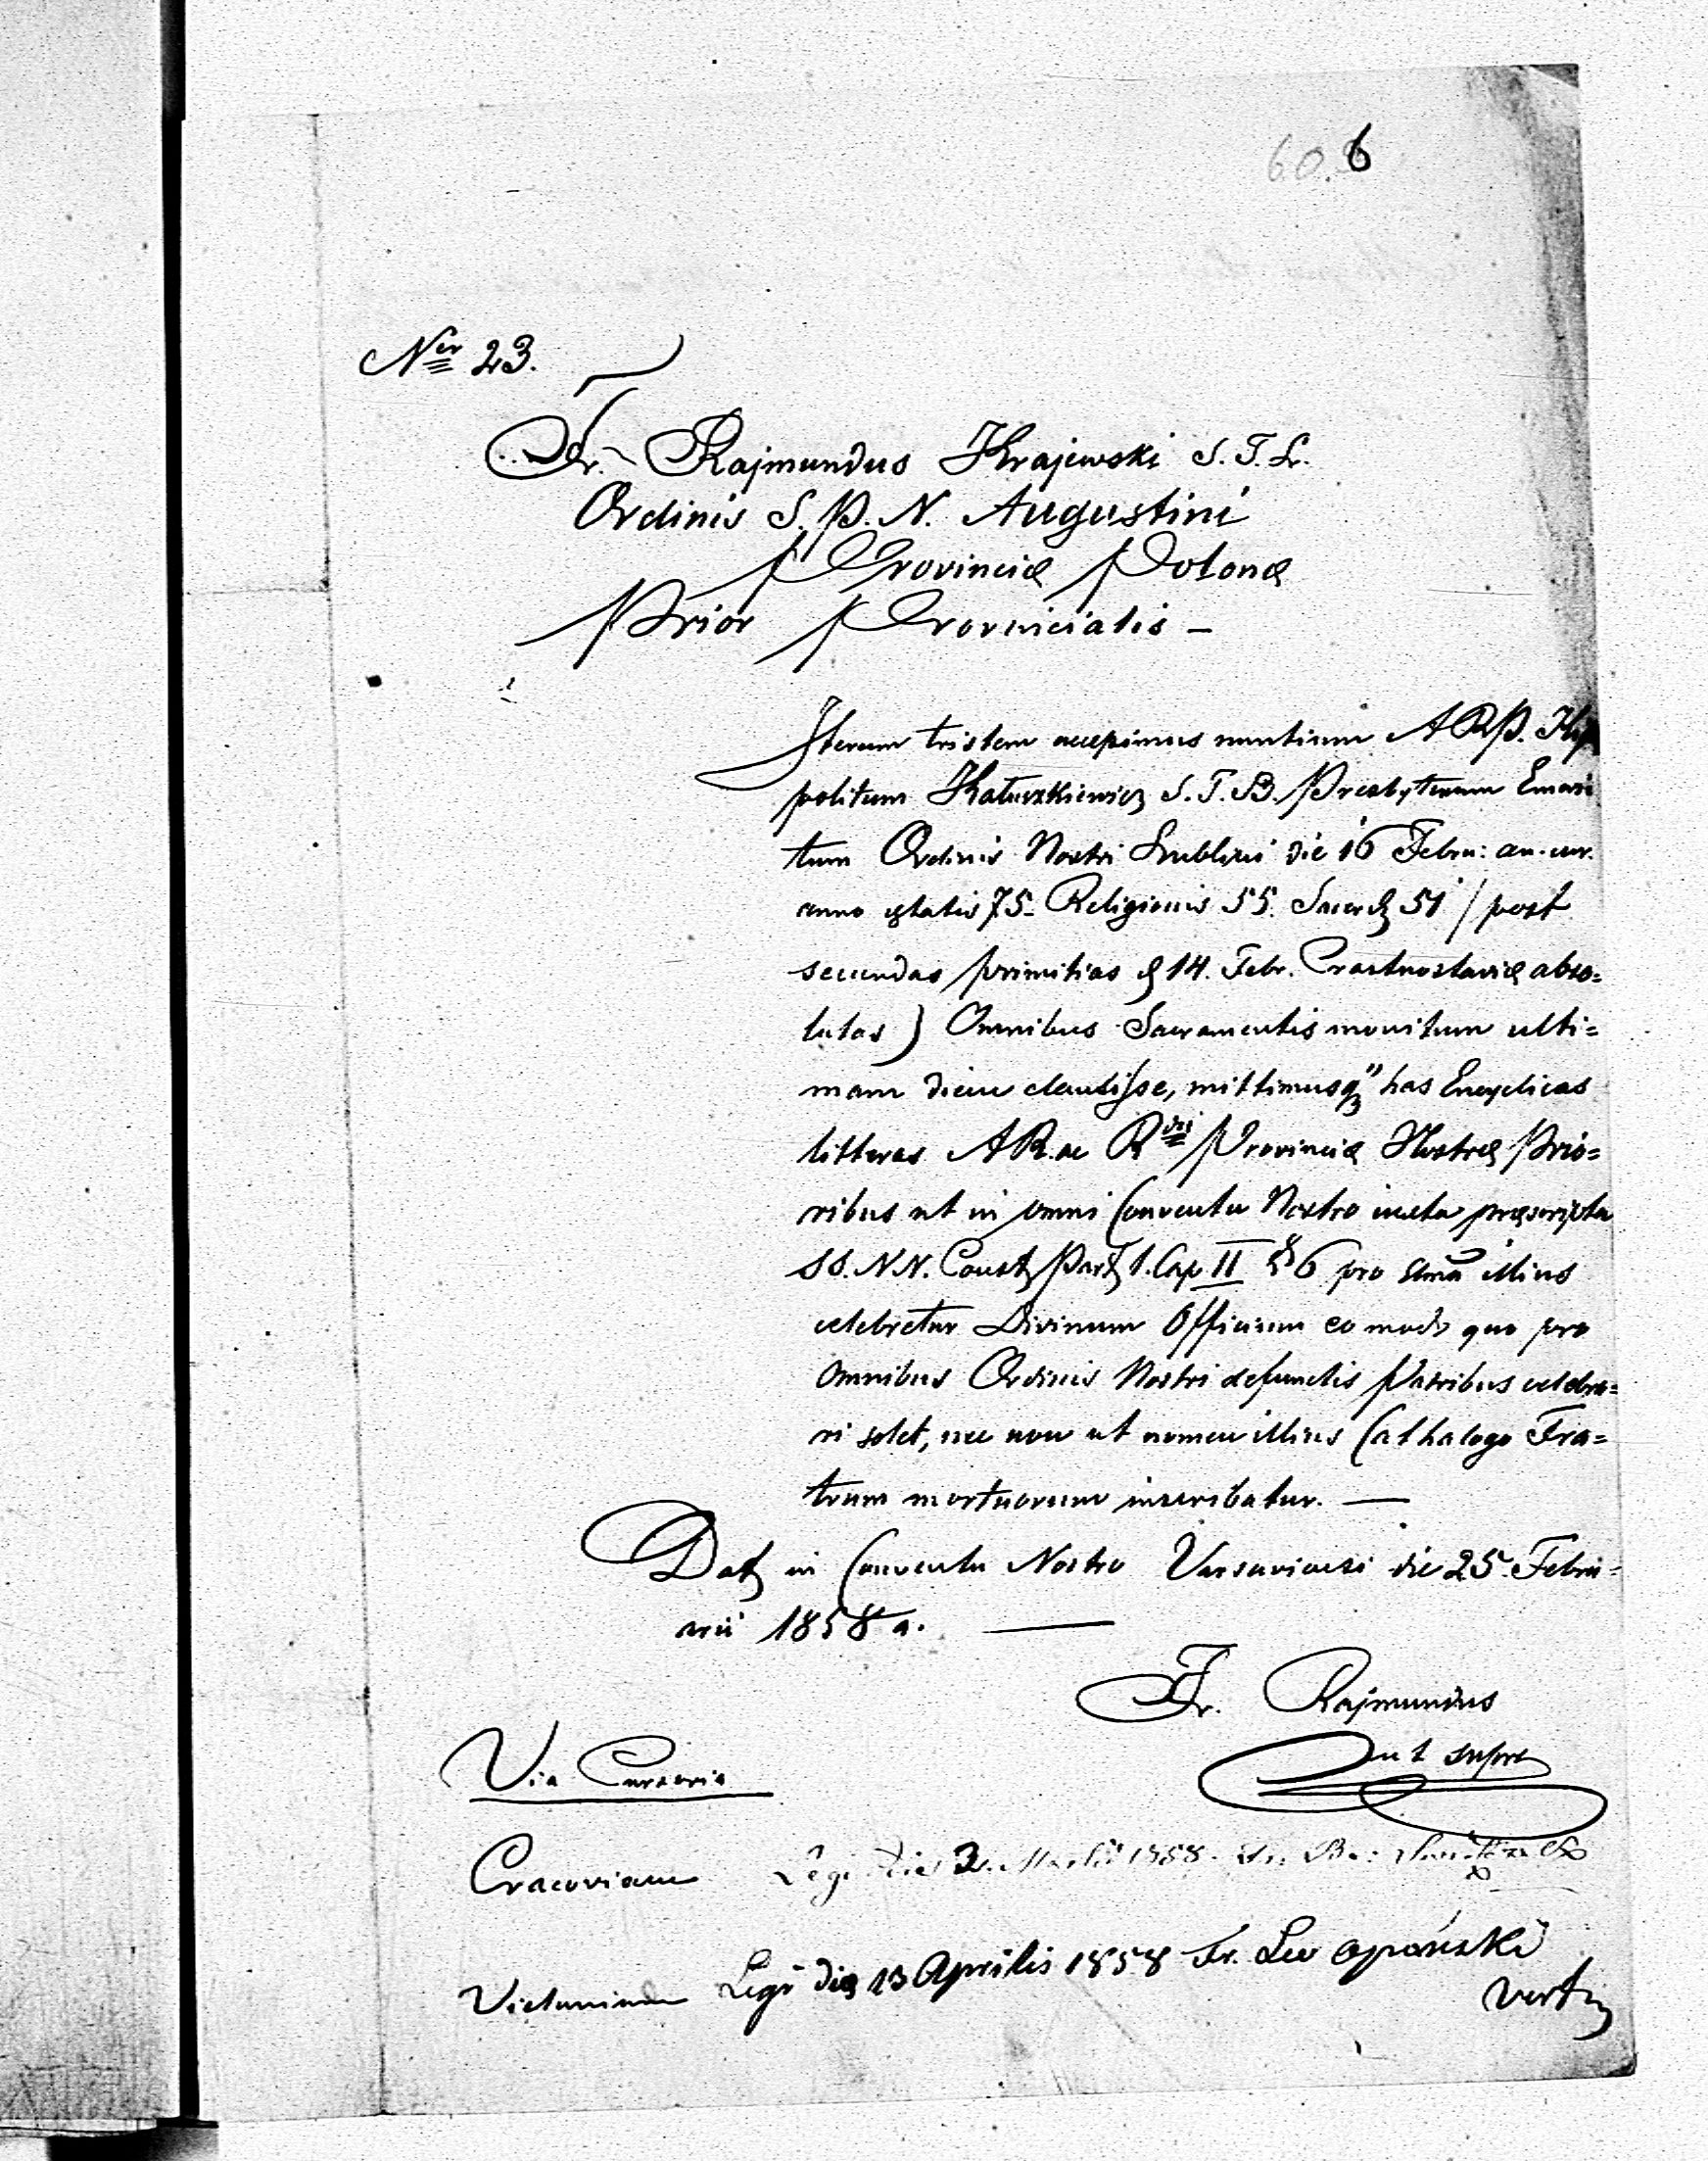 606
Ner 23.
Fr. Rajmundus Krajewski S. T. Lr.
Ordinis S. P. N. Augustini
Provinciæ Polonæ
Prior Provincialis –
Iterum tristem accepimus nuntium ARP. Hip
politum Kałuszkiewicz S. T. B. Presbyterum Emeri
tum Ordinis Nostri Lublini die 16 Febru: an. cur.
anno ętatis 75. Religionis 55. Sacerd 51 / post
secundas primitias d 14. Febr. Crasnostaviæ abso=
lutas) Omnibus Sacramentis monitum ulti=
mam diem clausisse, mittimusq" has Encyclicas
litteras AR. ac Rdis Provinciæ Nostræ Prio=
ribus ut in omni Conventu Nostro iuxta pręscripta
SS. NN. Const Part 1. Cap II § 6 pro aīma illius
celebretur Divinum Officium eo modo quo pro
Omnibus Ordinis Nostri defunctis Patribus celebra=
ri solet, nec non ut nomen illius Cathalogo Fra=
trum mortuorum inscribatur. —
Dat in Conventu Nostro Varsaviensi die 25 Febru=
arii 1858 a. —
Fr. Rajmundus
ut supra
Via Cursoria
Cracoviam Legi die 2. Martii 1858. Fr.
Vielunium Legi die 13 Aprilis 1858 Fr. Leo Opański
Vert